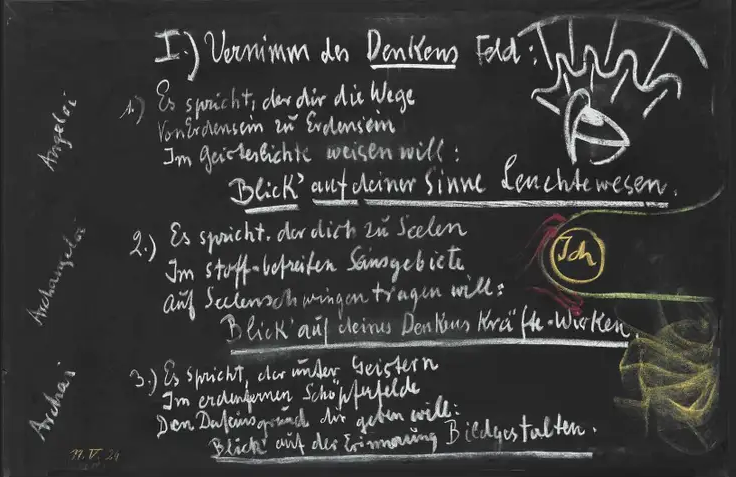 I.) Vernimm des Denkens Feld:
Angeloi
1.) Es spricht, der dir die Wege
Von Erdensein zu Erdensein
Im Geisteslichte weisen will:
Blick' auf deiner Sinne Leuchtewesen.
Archangeloi
2.) Es spricht, der dich zu Seelen
Im stoff-befreiten Seinsgebiete
Auf Seelenschwingen tragen will:
Blick auf deines Denkens Kräfte-Wirken.
Ich
Archai
3.) Es spricht, der unter Geistern
Im erdenfernen Schöpferfelde
Den Daseinsgrund dir geben will:
Blick auf der Erinnerung Bildgestalten.
24